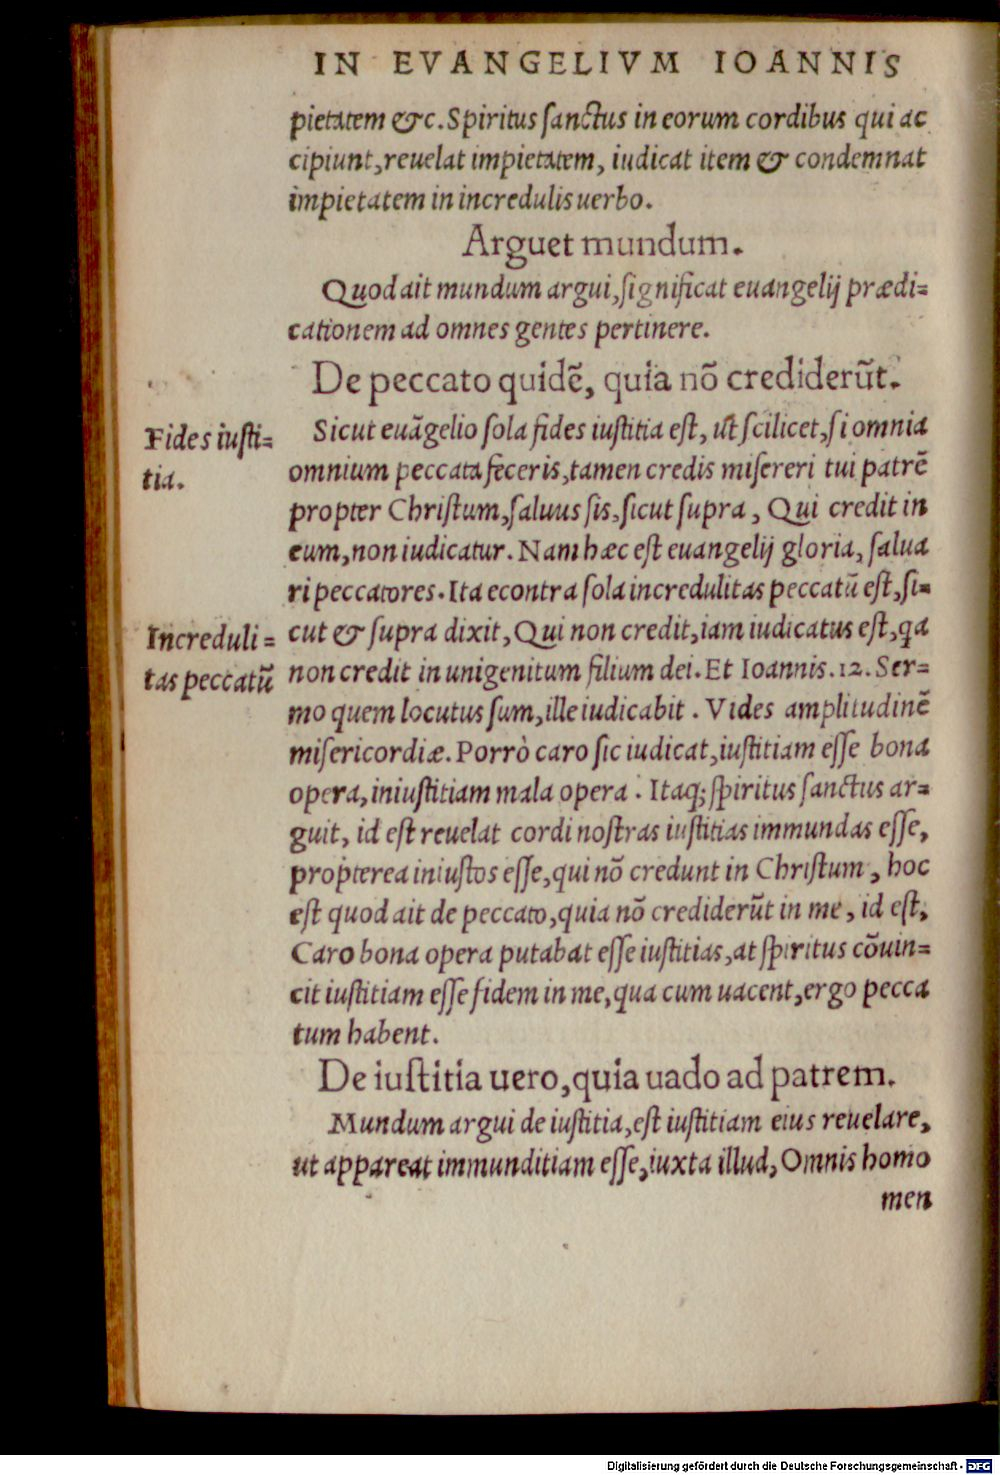 IN EVANGELIVM IOANNIS
pietatem &c. Spiritus ſanctus in eorum cordibus qui ac
cipiunt, reuelat impietatem, iudicat item & condemnat
impietatem in incredulis uerbo.
Arguet mundum.
Quod ait mundum argui, ſignificat euangelij prædi=
cationem ad omnes gentes pertinere.
De peccato quidẽ, quia nõ crediderũt.
Fides iuſti=
tia.
Sicut euãgelio ſola fides iuſtitia eſt, ut ſcilicet, ſi omnia
omnium peccata feceris, tamen credis miſereri tui patrẽ
propter Chriſtum, ſaluus ſis, ſicut ſupra, Qui credit in
eum, non iudicatur. Nam hæc eſt euangelij gloria, ſalua
ri peccatores. Ita econtra ſola incredulitas peccatũ eſt, ſi=
Increduli=
tas peccatũ
cut & ſupra dixit, Qui non credit, iam iudicatus eſt, qa
non credit in unigenitum filium dei. Et Ioannis. 12. Ser=
mo quem locutus ſum, ille iudicabit. Vides amplitudinẽ
miſericordiæ. Porrò caro ſic iudicat, iuſtitiam eſſe bona
opera, iniuſtitiam mala opera. Itaq; ſpiritus ſanctus ar=
guit, id eſt reuelat cordi noſtras iuſtitias immundas eſſe,
propterea iniuſtos eſſe, qui nõ credunt in Chriſtum, hoc
eſt quod ait de peccato, quia nõ crediderũt in me, id eſt,
Caro bona opera putabat eſſe iuſtitias, at ſpiritus cõuin=
cit iuſtitiam eſſe fidem in me, qua cum uacent, ergo pecca
tum habent.
De iuſtitia uero, quia uado ad patrem.
Mundum argui de iuſtitia, eſt iuſtitiam eius reuelare,
ut appareat immunditiam eſſe, iuxta illud, Omnis homo
men
Digitalisierung gefördert durch die Deutsche Forschungsgemeinschaft - DFG